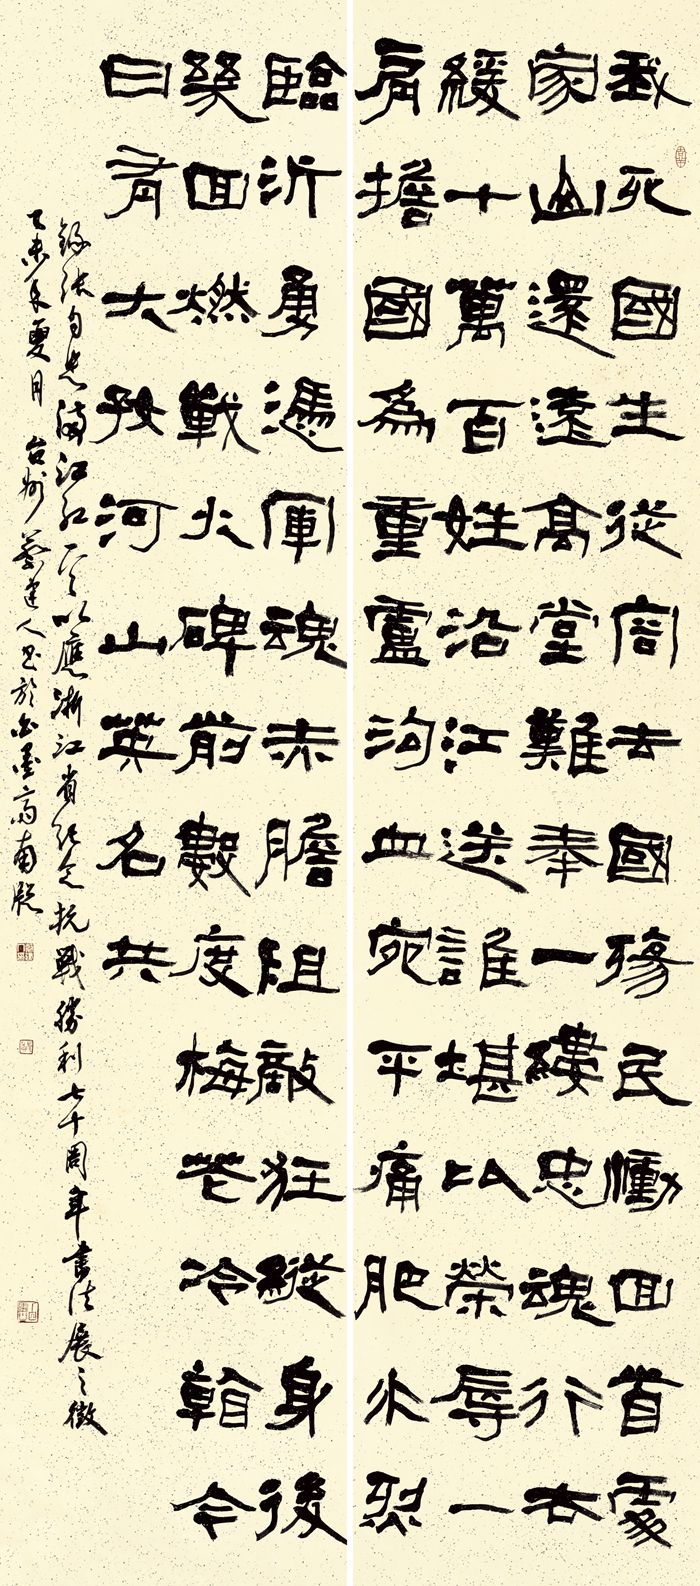 我死國生從容去國殤民慟回首處
家山還遠高堂難奉一縷忠魂行去
緩十萬百姓沿江送誰堪以榮辱一
肩擔國為重盧溝血宛平痛肥水烈
臨沂勇憑軍魂赤膽阻敵狂縱身後
幾回燃戰火碑前數度梅花冷看今
日有大好河山英名共
錄張自忠滿江紅以應浙江省紀念抗戰勝利七十周年書法展之徵
乙未年夏月台州建人書於墨齋南